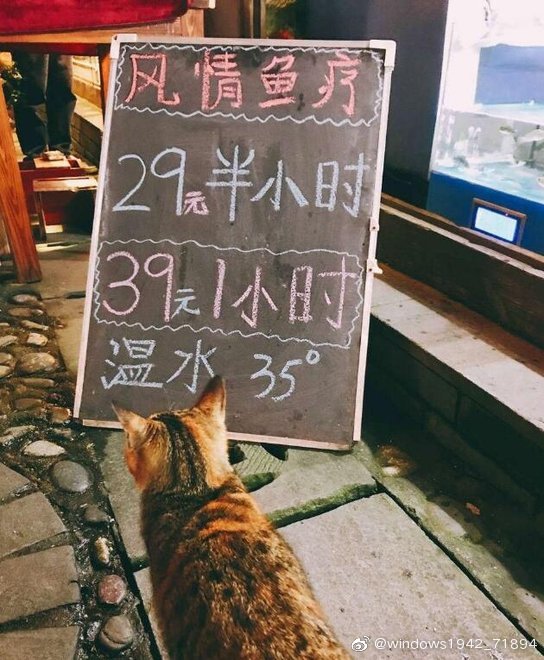 风情鱼疗
29元半小时
39元1小时
温水 35°
@windows1942_71894